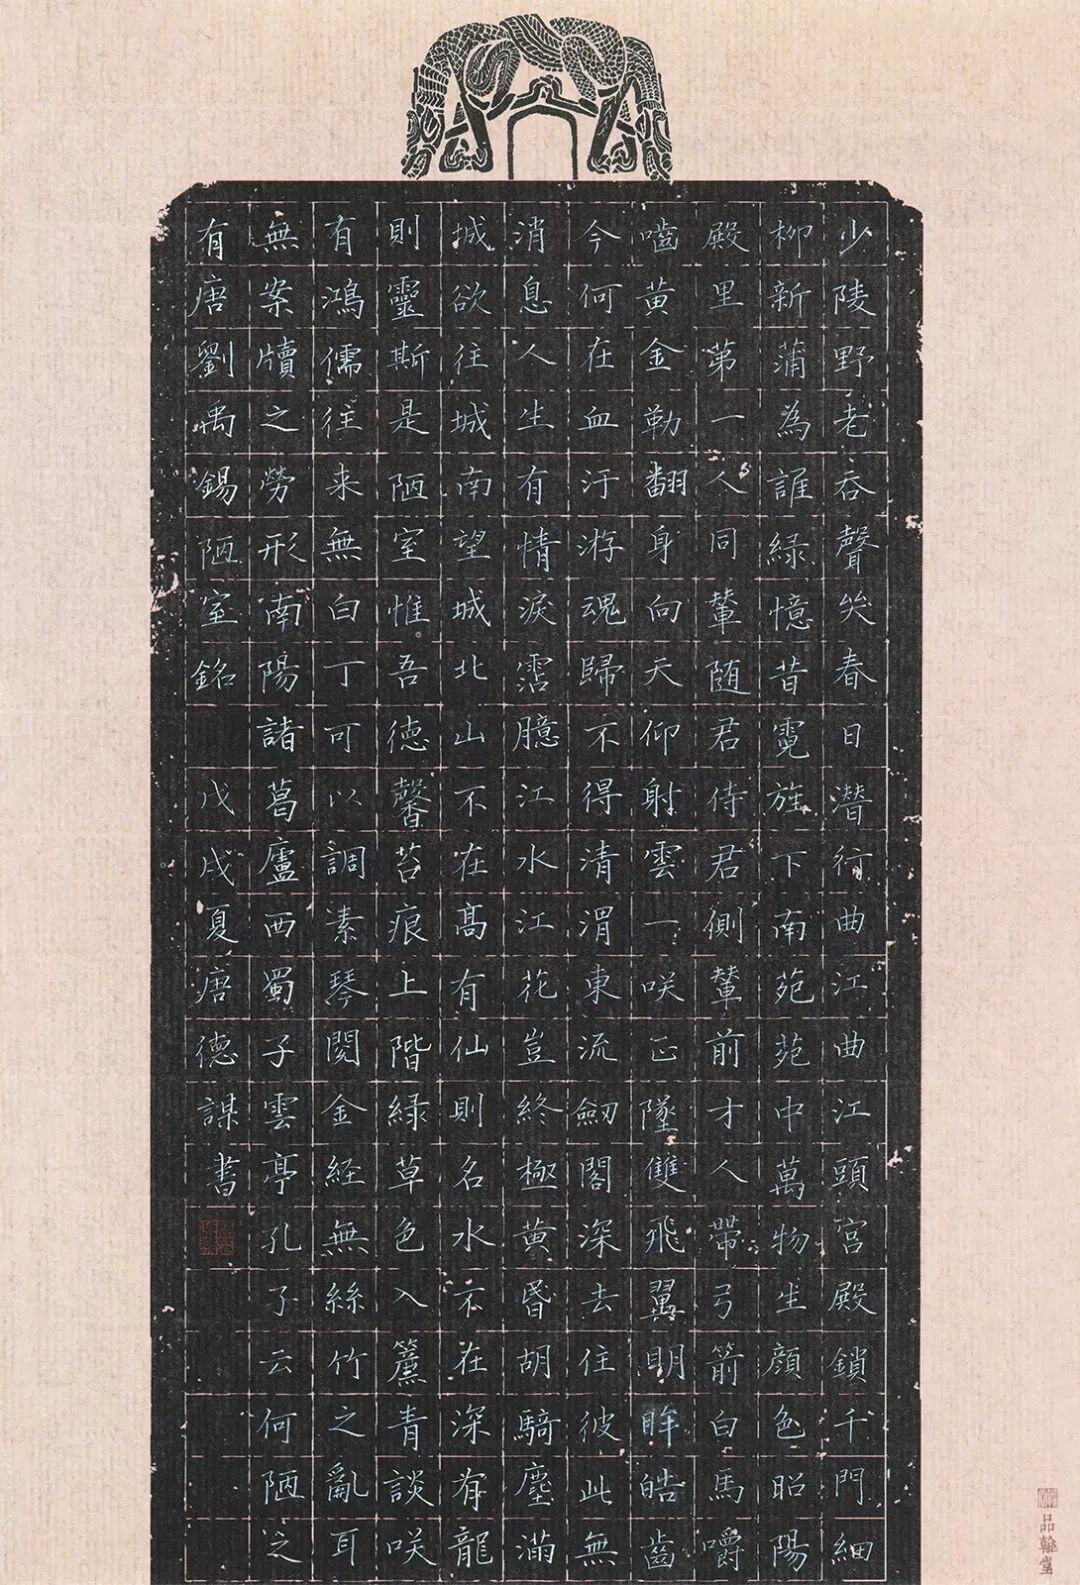 少陵野老吞聲哭春日潛行曲江曲江頭宮殿鎖千門細
柳新蒲為誰緑憶昔霓旌下南苑苑中萬物生顔色昭陽
殿里第一人同輦随君侍君側輦前才人帶弓箭白馬嚼
嚙黄金勒翻身向天仰射雲一咲正墜雙飛翼明眸皓齒
今何在血汙游魂歸不得清渭東流劒閣深去住彼此無
消息人生有情淚霑臆江水江花豈終極黄昏胡騎塵滿
城欲往城南望城北山不在髙有仙則名水不在深有龍
則靈斯是陋室惟吾德馨苔痕上階緑草色入簾青談咲
有鴻儒往来無白丁可以調素琴閲金経無絲竹之亂耳
無案牘之勞形南陽諸葛廬西蜀子雲亭孔子云何陋之
有唐劉禹錫陋室銘 戊戌夏唐德謀書
品翰堂